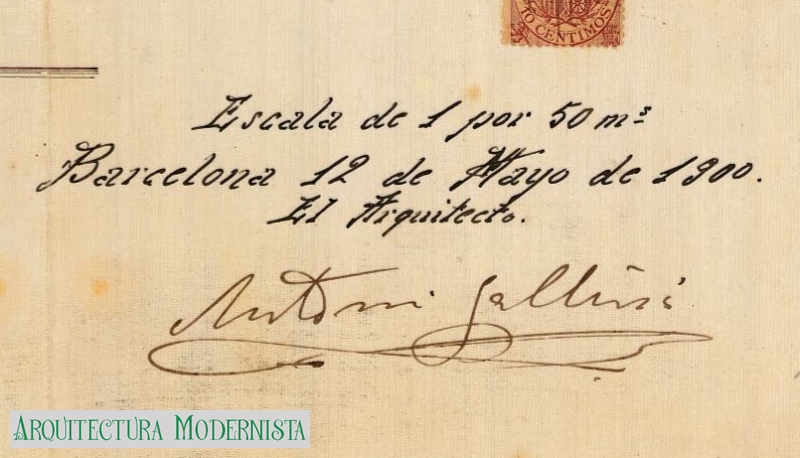 10 CENTIMOS
Escala de 1 por 50 mˢ
Barcelona 12 de Mayo de 1900.
El Arquitecto.
Antoni Gallissà
ARQUITECTURA MODERNISTA